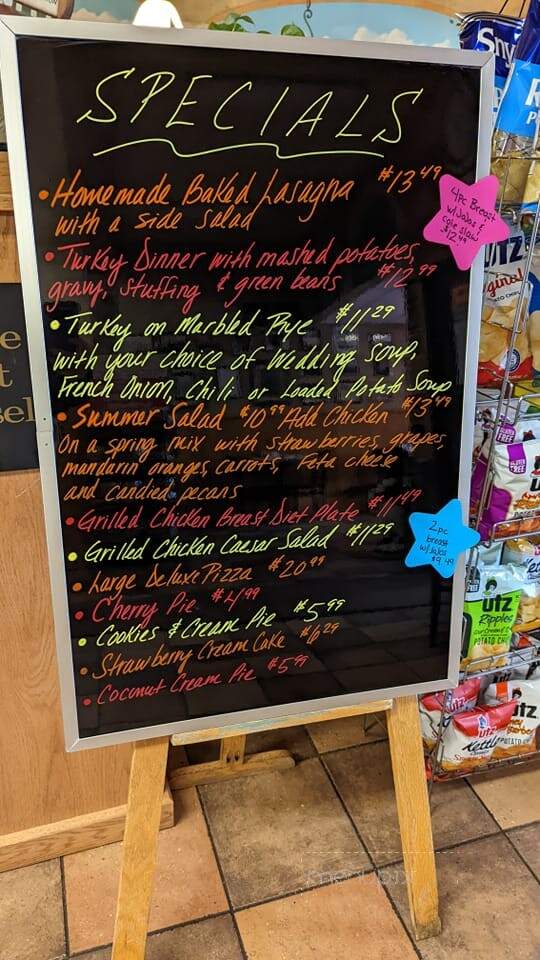 SPECIALS
• Homemade Baked Lasagna $13 49
with a side salad
• Turkey Dinner with mashed potatoes,
gravy, stuffing & green beans $12 99
• Turkey on Marbled Rye $11 29
with your choice of Wedding Soup,
French Onion, Chili or Loaded Potato Soup
• Summer Salad $10 99 Add Chicken $13 49
On a spring mix with strawberries, grapes,
mandarin oranges, carrots, Feta cheese
and candied pecans
• Grilled Chicken Breast Diet Plate $11 49
• Grilled Chicken Caesar Salad $11 29
• Large Deluxe Pizza $20 99
• Cherry Pie $4 99
• Cookies & Cream Pie $5 99
• Strawberry Cream Cake $6 29
• Coconut Cream Pie $5 99
4pc Breast
w/JoJos &
cole slaw
$12.49
2pc
breast
w/JoJos
$9.49
UTZ
GLUTEN FREE
utz
Ripples
POTATO
utz
Kettle
utz